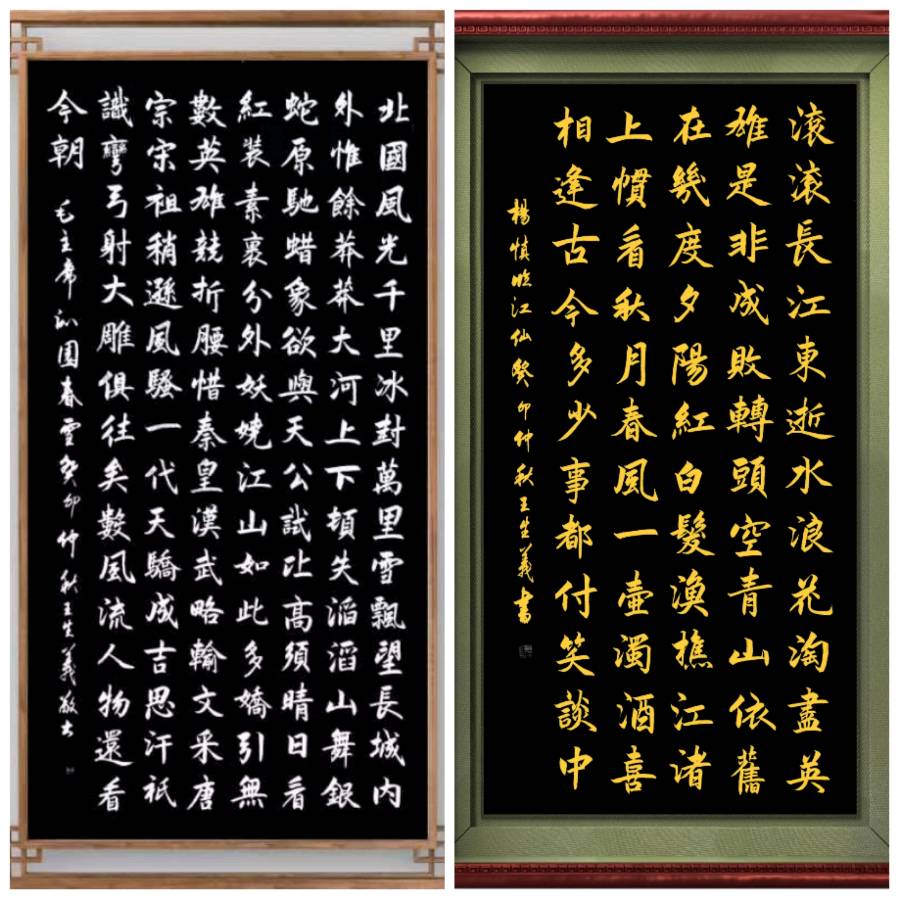 北國風光千里冰封萬里雪飄望長城内
外惟餘莽莽大河上下頓失滔滔山舞銀
蛇原馳蜡象欲與天公試比高須晴日看
紅裝素裹分外妖嬈江山如此多嬌引無
數英雄競折腰惜秦皇漢武略輸文采唐
宗宋祖稍遜風騷一代天驕成吉思汗祇
識彎弓射大雕俱往矣數風流人物還看
今朝
毛主席沁園春雪癸卯仲秋王生義敬書
滾滾長江東逝水浪花淘盡英
雄是非成敗轉頭空青山依舊
在幾度夕陽紅白髮漁樵江渚
上慣看秋月春風一壺濁酒喜
相逢古今多少事都付笑談中
楊慎臨江仙癸卯仲秋王生義書